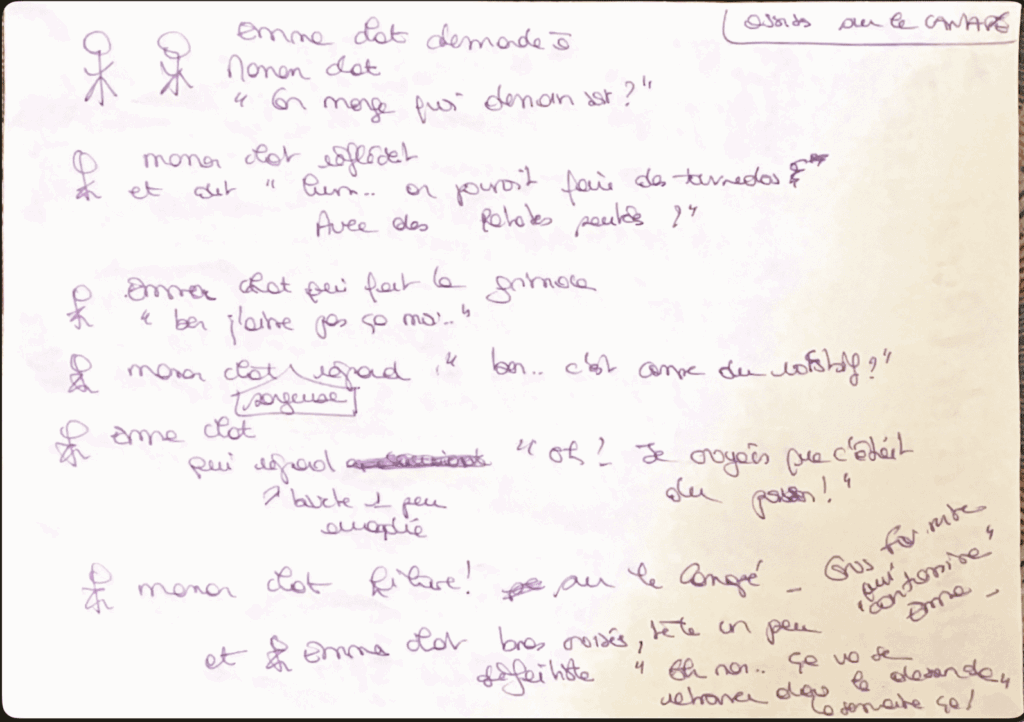 assis sur le CANAPÉ
Emma chat demande à
Maman chat
" On mange quoi demain soir ? "
maman chat réfléchit
et dit " hum.. on pourrait faire des tournedos
Avec des Patates sautées ? "
Emma chat qui fait la grimace
" ben j'aime pas ça moi.. "
maman chat regard " ben.. c'est comme du rosbif ? "
songeuse
Emma chat
qui regard " oh ! Je croyais que c'était
bouche 1 peu du poisson ! "
maman chat hilare ! sur le canapé _ Gros fou rire
qui
" contamine "
Emma _
et Emma chat bras croisés, tête un peu
" Eh non.. ça va se
retrouver dans la
ça !